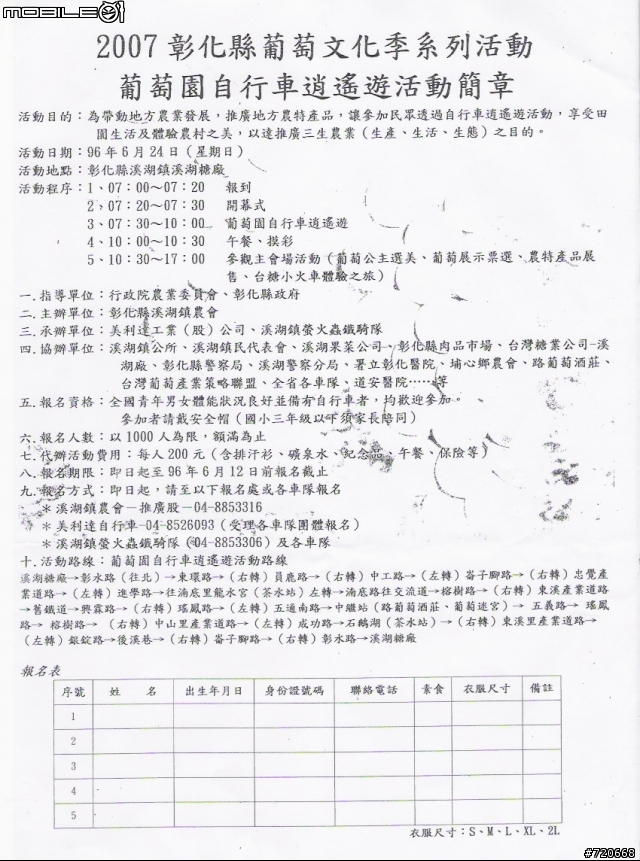 mobile01
2007 彰化縣葡萄文化季系列活動
葡萄園自行車逍遙遊活動簡章
活動目的：為帶動地方農業發展，推廣地方農特產品，讓參加民眾透過自行車逍遙遊活動，享受田
園生活及體驗農村之美，以達推廣三生農業（生產、生活、生態）之目的。
活動日期：96 年 6 月 24 日（星期日）
活動地點：彰化縣溪湖鎮溪湖糖廠
活動程序：1、07：00～07：20 報到
2、07：20～07：30 開幕式
3、07：30～10：00 葡萄園自行車逍遙遊
4、10：00～10：30 午餐、摸彩
5、10：30～17：00 參觀主會場活動（葡萄公主選美、葡萄展示票選、農特產品展
售、台糖小火車體驗之旅）
一．指導單位：行政院農業委員會、彰化縣政府
二．主辦單位：彰化縣溪湖鎮農會
三．承辦單位：美利達工業（股）公司、溪湖鎮螢火蟲鐵騎隊
四．協辦單位：溪湖鎮公所、溪湖鎮民代表會、溪湖果菜公司、彰化縣肉品市場、台灣糖業公司-溪
湖廠、彰化縣警察局、溪湖警察分局、署立彰化醫院、埔心鄉農會、路葡萄酒莊、
台灣葡萄產業策略聯盟、全省各車隊、道安醫院……等
五．報名資格：全國青年男女體能狀況良好並備有自行車者，均歡迎參加。
參加者請戴安全帽（國小三年級以下須家長陪同）
六．報名人數：以 1000 人為限，額滿為止
七．代辦活動費用：每人 200 元（含排汗衫、礦泉水、紀念品、午餐、保險等）
八．報名期限：即日起至 96 年 6 月 12 日前報名截止
九．報名方式：即日起，請至以下報名處或各車隊報名
＊溪湖鎮農會－推廣股－04-8853316
＊美利達自行車-04-8526093（受理各車隊團體報名）
＊溪湖鎮螢火蟲鐵騎隊（04-8853306）及各車隊
十．活動路線：葡萄園自行車逍遙遊活動路線
溪湖糖廠→彰水路（往北）→東環路→（右轉）員鹿路→（右轉）中工路→（左轉）崙子腳路→（右轉）忠覺產
業道路→（左轉）進學路→往湳底里龍水宮（茶水站）左轉→湳底路往交流道→榕樹路→（右轉）東溪產業道路
→舊鐵道→興霖路→（右轉）瑤鳳路→（左轉）五通南路→中繼站（路葡萄酒莊、葡萄迷宮）→ 五義路→ 瑤鳳
路→ 榕樹路→ （右轉）中山里產業道路→（左轉）成功路→石鵝湖（茶水站）→（右轉）東溪里產業道路→
（左轉）銀錠路→後溪巷→（右轉）崙子腳路→（右轉）彰水路→溪湖糖廠
報名表
序號 姓 名 出生年月日 身份證號碼 聯絡電話 素食 衣服尺寸 備註
1
2
3
4
5
衣服尺寸：S、M、L、XL、2L
#720668